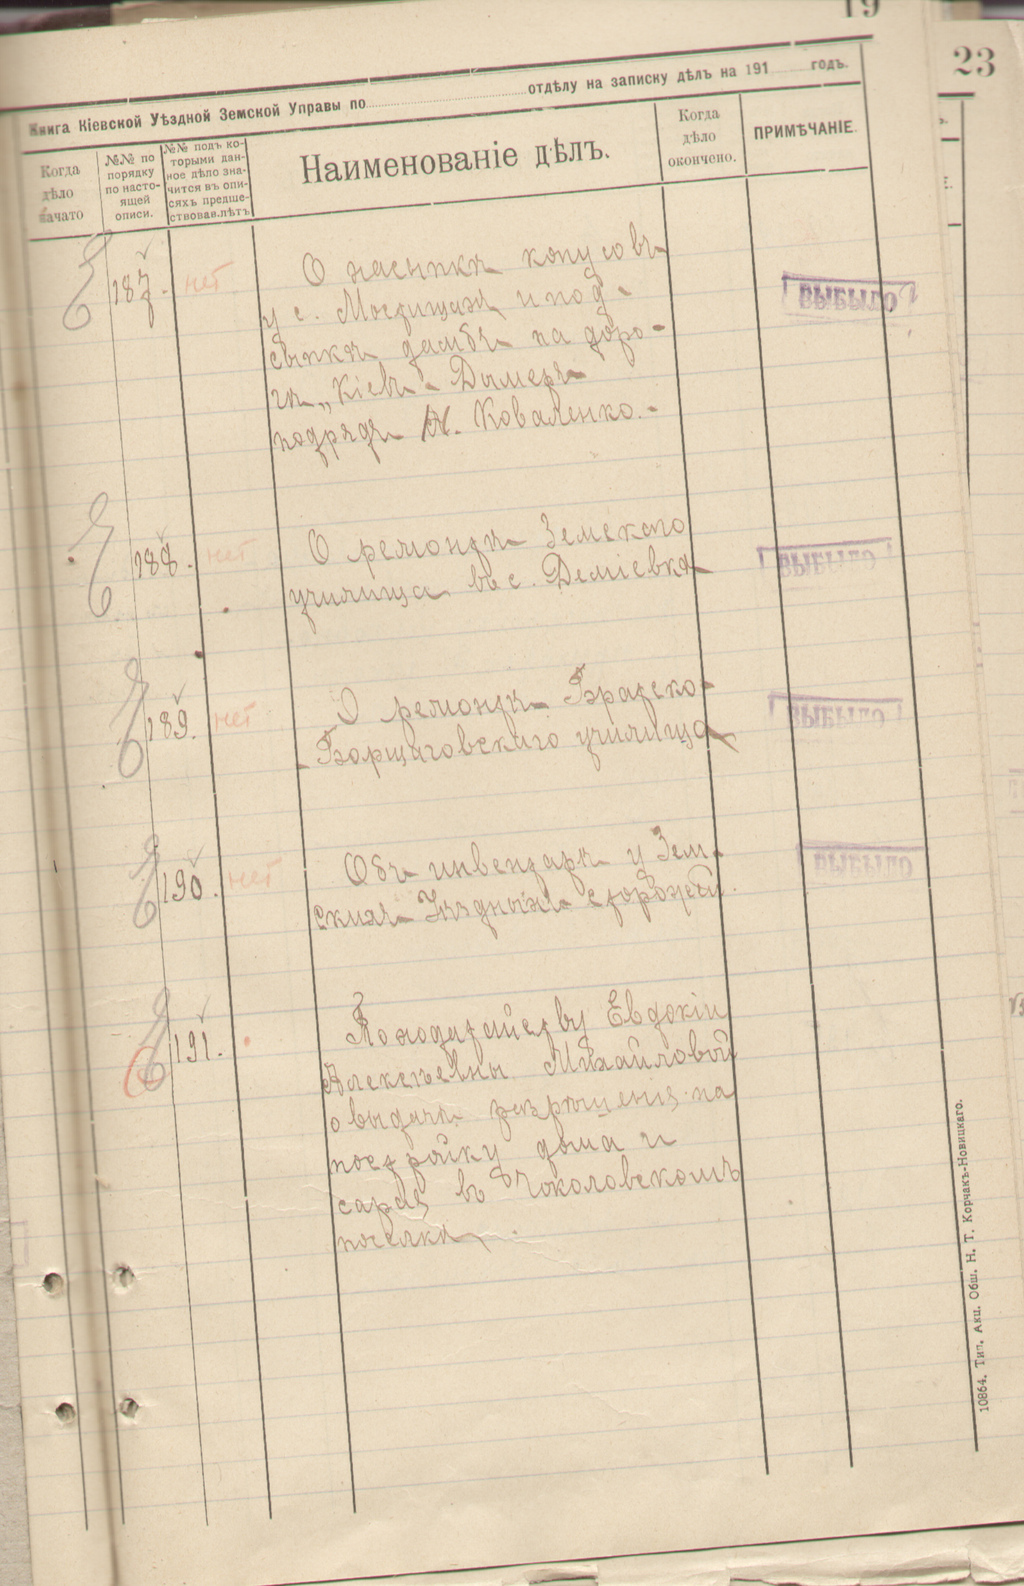 19
23
Книга Кіевской Уѣздной Земской Управы по отдѣлу на записку дѣлъ на 191 годъ.
Когда дѣло начато
№№ по порядку по настоящей описи.
№№ подъ которыми данное дѣло значится въ описяхъ предшествовав. лѣтъ
Наименованіе дѣлъ.
Когда дѣло окончено.
ПРИМѢЧАНІЕ.
187. нет
О насыпкѣ конусовъ
у с. Мостищахъ и под-
сыпкѣ дамбъ на доро-
гѣ „Кіевъ - Дымеръ
подрядъ Коваленко.-
ВЫБЫЛО
188. нет
О ремонтѣ Земскаго
училища въ с. Деміевкѣ
ВЫБЫЛО
189. нет
О ремонтѣ Братско-
Борщаговскаго училища
ВЫБЫЛО
190. нет
Объ инвентарѣ у Зем-
скихъ Уѣздныхъ сторожей.
ВЫБЫЛО
191.
По ходатайству Евдокіи
Алексѣевны Михайловой
о выдачѣ разрѣшенія на
постройку дома и
сарая въ Чоколовскомъ
поселкѣ.
10864. Тип. Акц. Общ. Н. Т. Корчакъ-Новицкаго.